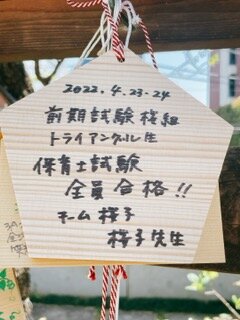 2022.4.23-24
前期試験桜組
トライアングル生
保育士試験
全員合格!!
チーム桜子
桜子先生